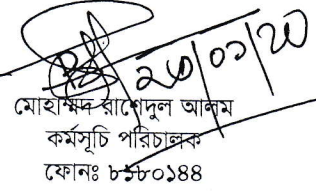 ২৩/০১/২০
মোহাম্মদ রাশেদুল আলম
কর্মসূচি পরিচালক
ফোনঃ ৮১৮০১৪৪